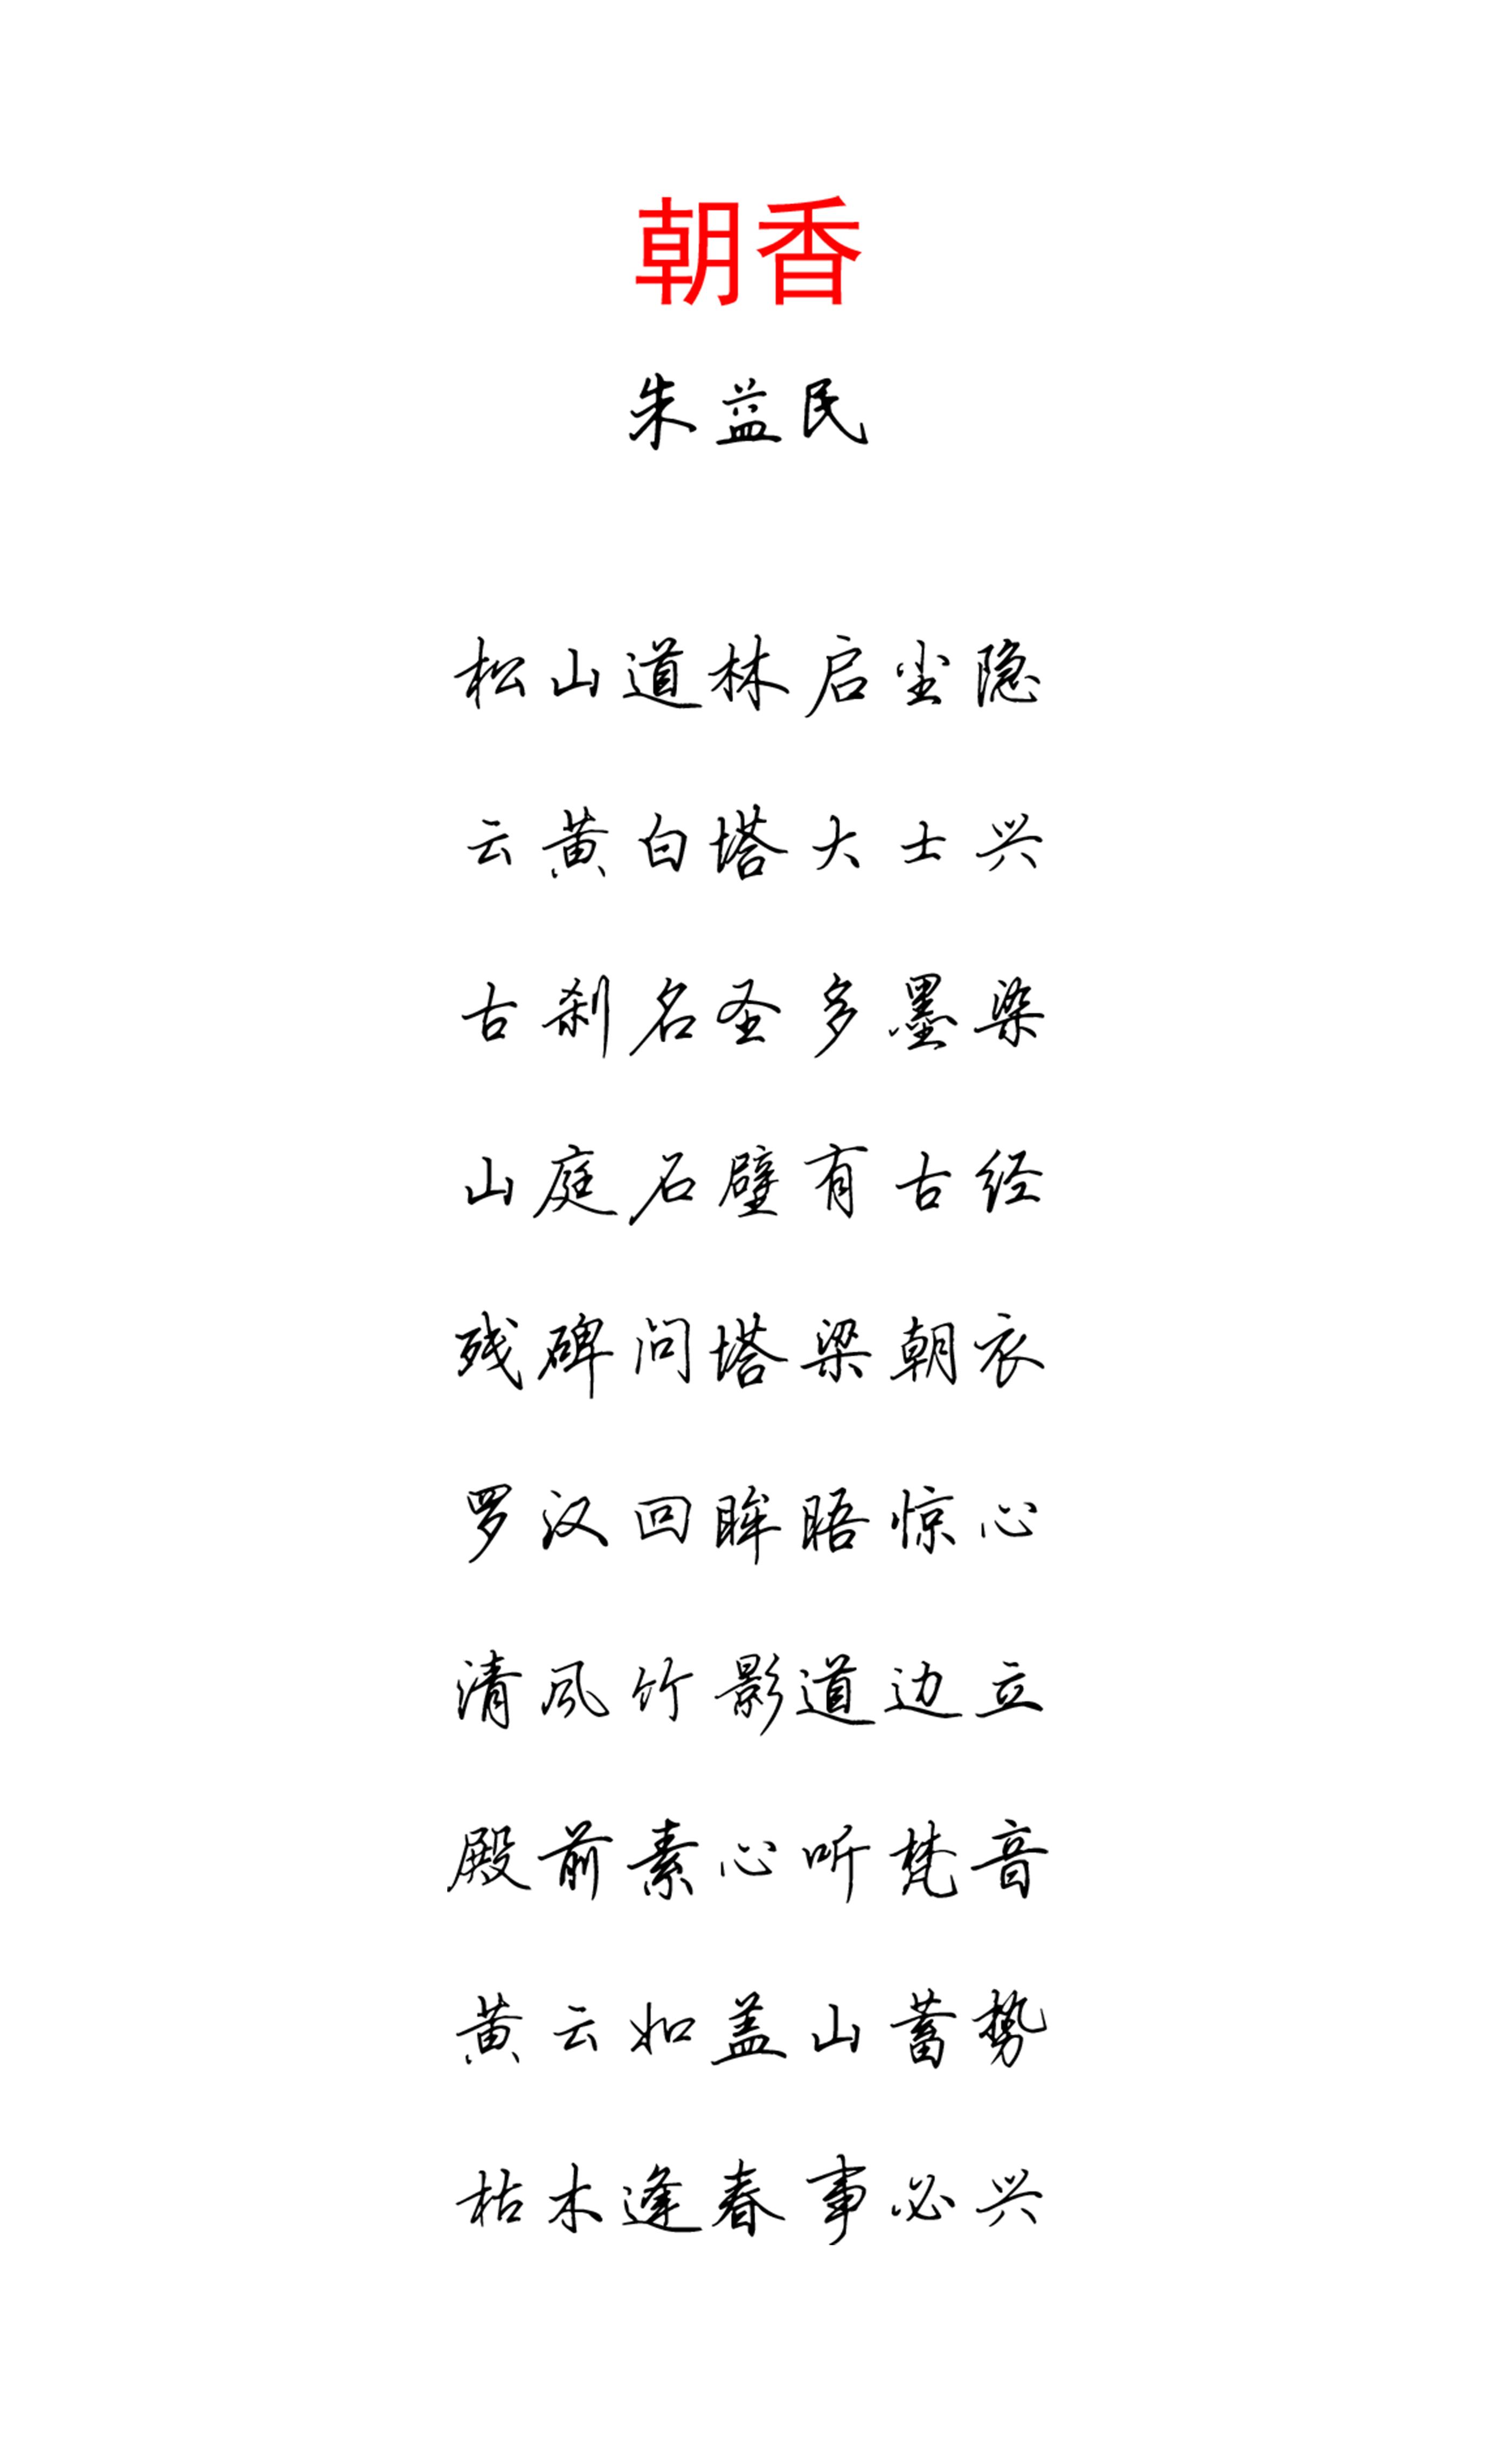 朝香
朱益民
松山道林启尘隐
云黄白塔大士兴
古刹名圣多墨染
山庭石壁有古经
残碑问塔梁朝衣
罗汉回眸晤惊心
清风竹影道边立
殿前素心听梵音
黄云如盖山蓄势
枯木逢春事必兴